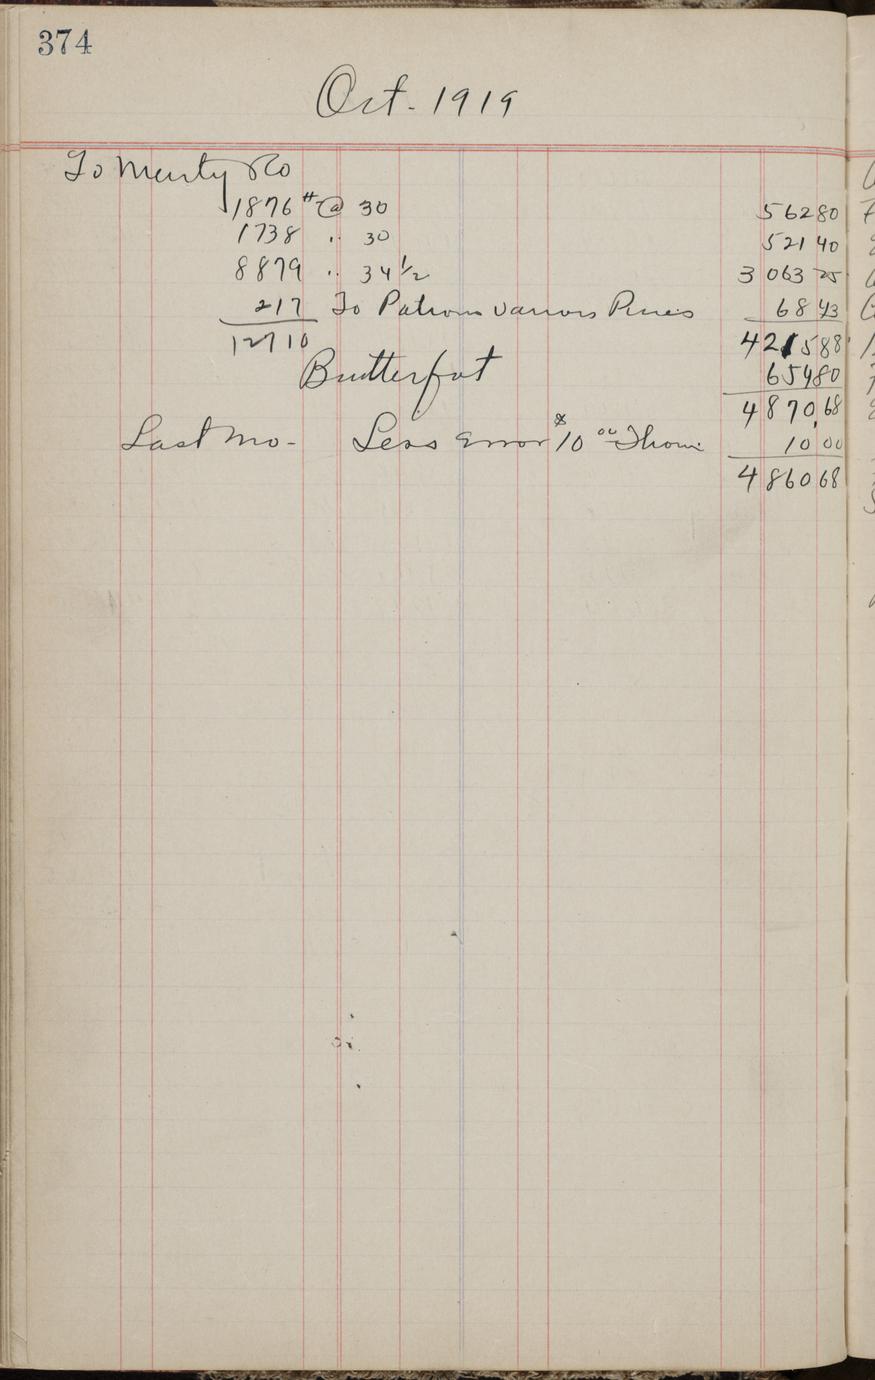 374
Oct. 1919
To Co
1876 # @ 30 562 80
1738 " 30 521 40
8879 " 34 1/2 3 063 25
217 To Patrons various Prices 68 43
12710 4 215 88
Butterfat 654 80
4 870 68
Last Mo - Less Error $10 00 10 00
4 860 68